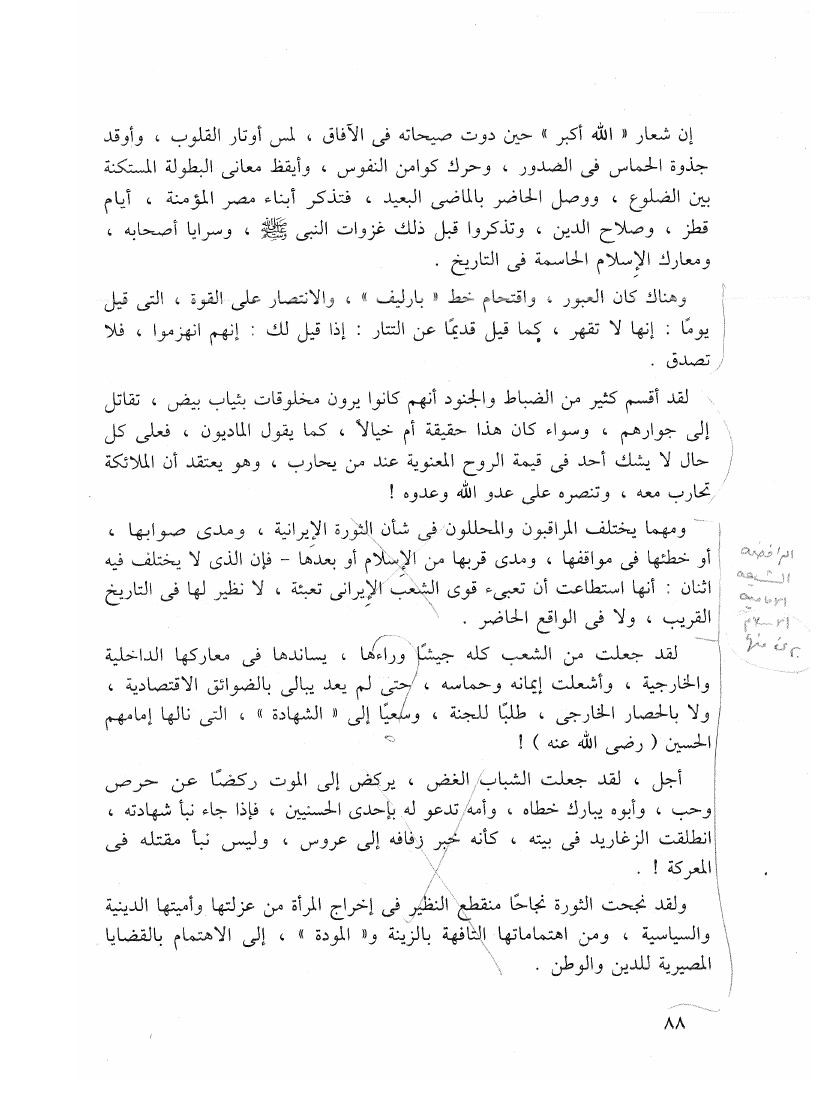 إن شعار « الله أكبر » حين دوت صيحاته فى الآفاق ، لمس أوتار القلوب ، وأوقد
جذوة الحماس فى الصدور ، وحرك كوامن النفوس ، وأيقظ معانى البطولة المستكنة
بين الضلوع ، ووصل الحاضر بالماضى البعيد ، فتذكر أبناء مصر المؤمنة ، أيام
قطز ، وصلاح الدين ، وتذكروا قبل ذلك غزوات النبى ﷺ ، وسرايا أصحابه ،
ومعارك الإسلام الحاسمة فى التاريخ .
وهناك كان العبور ، واقتحام خط « بارليف » ، والانتصار على القوة ، التى قيل
يومًا : إنها لا تقهر ، كما قيل قديمًا عن التتار : إذا قيل لك : إنهم انهزموا ، فلا
تصدق .
لقد أقسم كثير من الضباط والجنود أنهم كانوا يرون مخلوقات بثياب بيض ، تقاتل
إلى جوارهم ، وسواء كان هذا حقيقة أم خيالاً ، كما يقول الماديون ، فعلى كل
حال لا يشك أحد فى قيمة الروح المعنوية عند من يحارب ، وهو يعتقد أن الملائكة
تحارب معه ، وتنصره على عدو الله وعدوه !
ومهما يختلف المراقبون والمحللون فى شأن الثورة الإيرانية ، ومدى صوابها ،
أو خطئها فى مواقفها ، ومدى قربها من الإسلام أو بعدها – فإن الذى لا يختلف فيه
اثنان : أنها استطاعت أن تعبىء قوى الشعب الإيرانى تعبئة ، لا نظير لها فى التاريخ
القريب ، ولا فى الواقع الحاضر .
الرافضه
الشيعه
الاماميه
الاسلام
لقد جعلت من الشعب كله جيشًا وراءها ، يساندها فى معاركها الداخلية
والخارجية ، وأشعلت إيمانه وحماسه ، حتى لم يعد يبالى بالضوائق الاقتصادية ،
ولا بالحصار الخارجى ، طلبًا للجنة ، وسعيًا إلى « الشهادة » ، التى نالها إمامهم
الحسين ( رضى الله عنه ) !
أجل ، لقد جعلت الشباب الغض ، يركض إلى الموت ركضًا عن حرص
وحب ، وأبوه يبارك خطاه ، وأمه تدعو له بإحدى الحسنيين ، فإذا جاء نبأ شهادته ،
انطلقت الزغاريد فى بيته ، كأنه خبر زفافه إلى عروس ، وليس نبأ مقتله فى
المعركة ! .
ولقد نجحت الثورة نجاحًا منقطع النظير فى إخراج المرأة من عزلتها وأميتها الدينية
والسياسية ، ومن اهتماماتها التافهة بالزينة و« المودة » ، إلى الاهتمام بالقضايا
المصيرية للدين والوطن .
٨٨